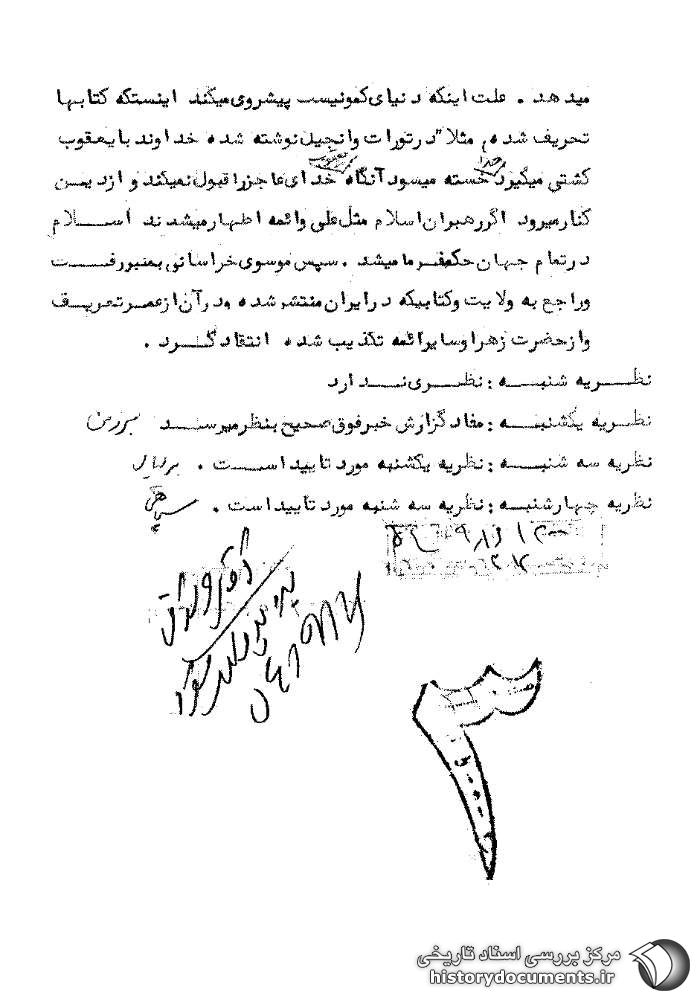 میدهد . علت اینکه دنیای کمونیست پیشروی میکند اینستکه کتابها
تحریف شده، مثلا" در تورات وانجیل نوشته شده خداوند با یعقوب
کشتی میگیرد خدا خسته میسود آنگاه خدای عاجز را قبول نمیکند و از دین
کنار میرود اگر رهبران اسلام مثل علی وائمه اظهار میشدند اسلام
در تمام جهان حکمفرما میشد . سپس موسوی خراسانی بمنبر رفت
وراجع به ولایت وکتابیکه در ایران منتشر شده ودر آن از عمر تعریف
واز حضرت زهرا وسایر ائمه تکذیب شده انتقاد کرد .
نظریه شنبه : نظری ندارد
نظریه یکشنبه : مفاد گزارش خبر فوق صحیح بنظر میرسد
نظریه سه شنبه : نظریه یکشنبه مورد تایید است .
نظریه چهارشنبه : نظریه سه شنبه مورد تایید است .
۳
مرکز بررسی اسناد تاریخی
historydocuments.ir